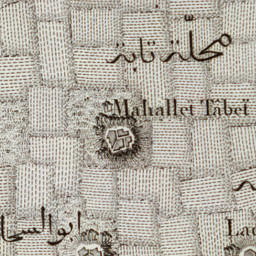 محلّة تابة
Mahallet Tâbeï
ابو السحا
La